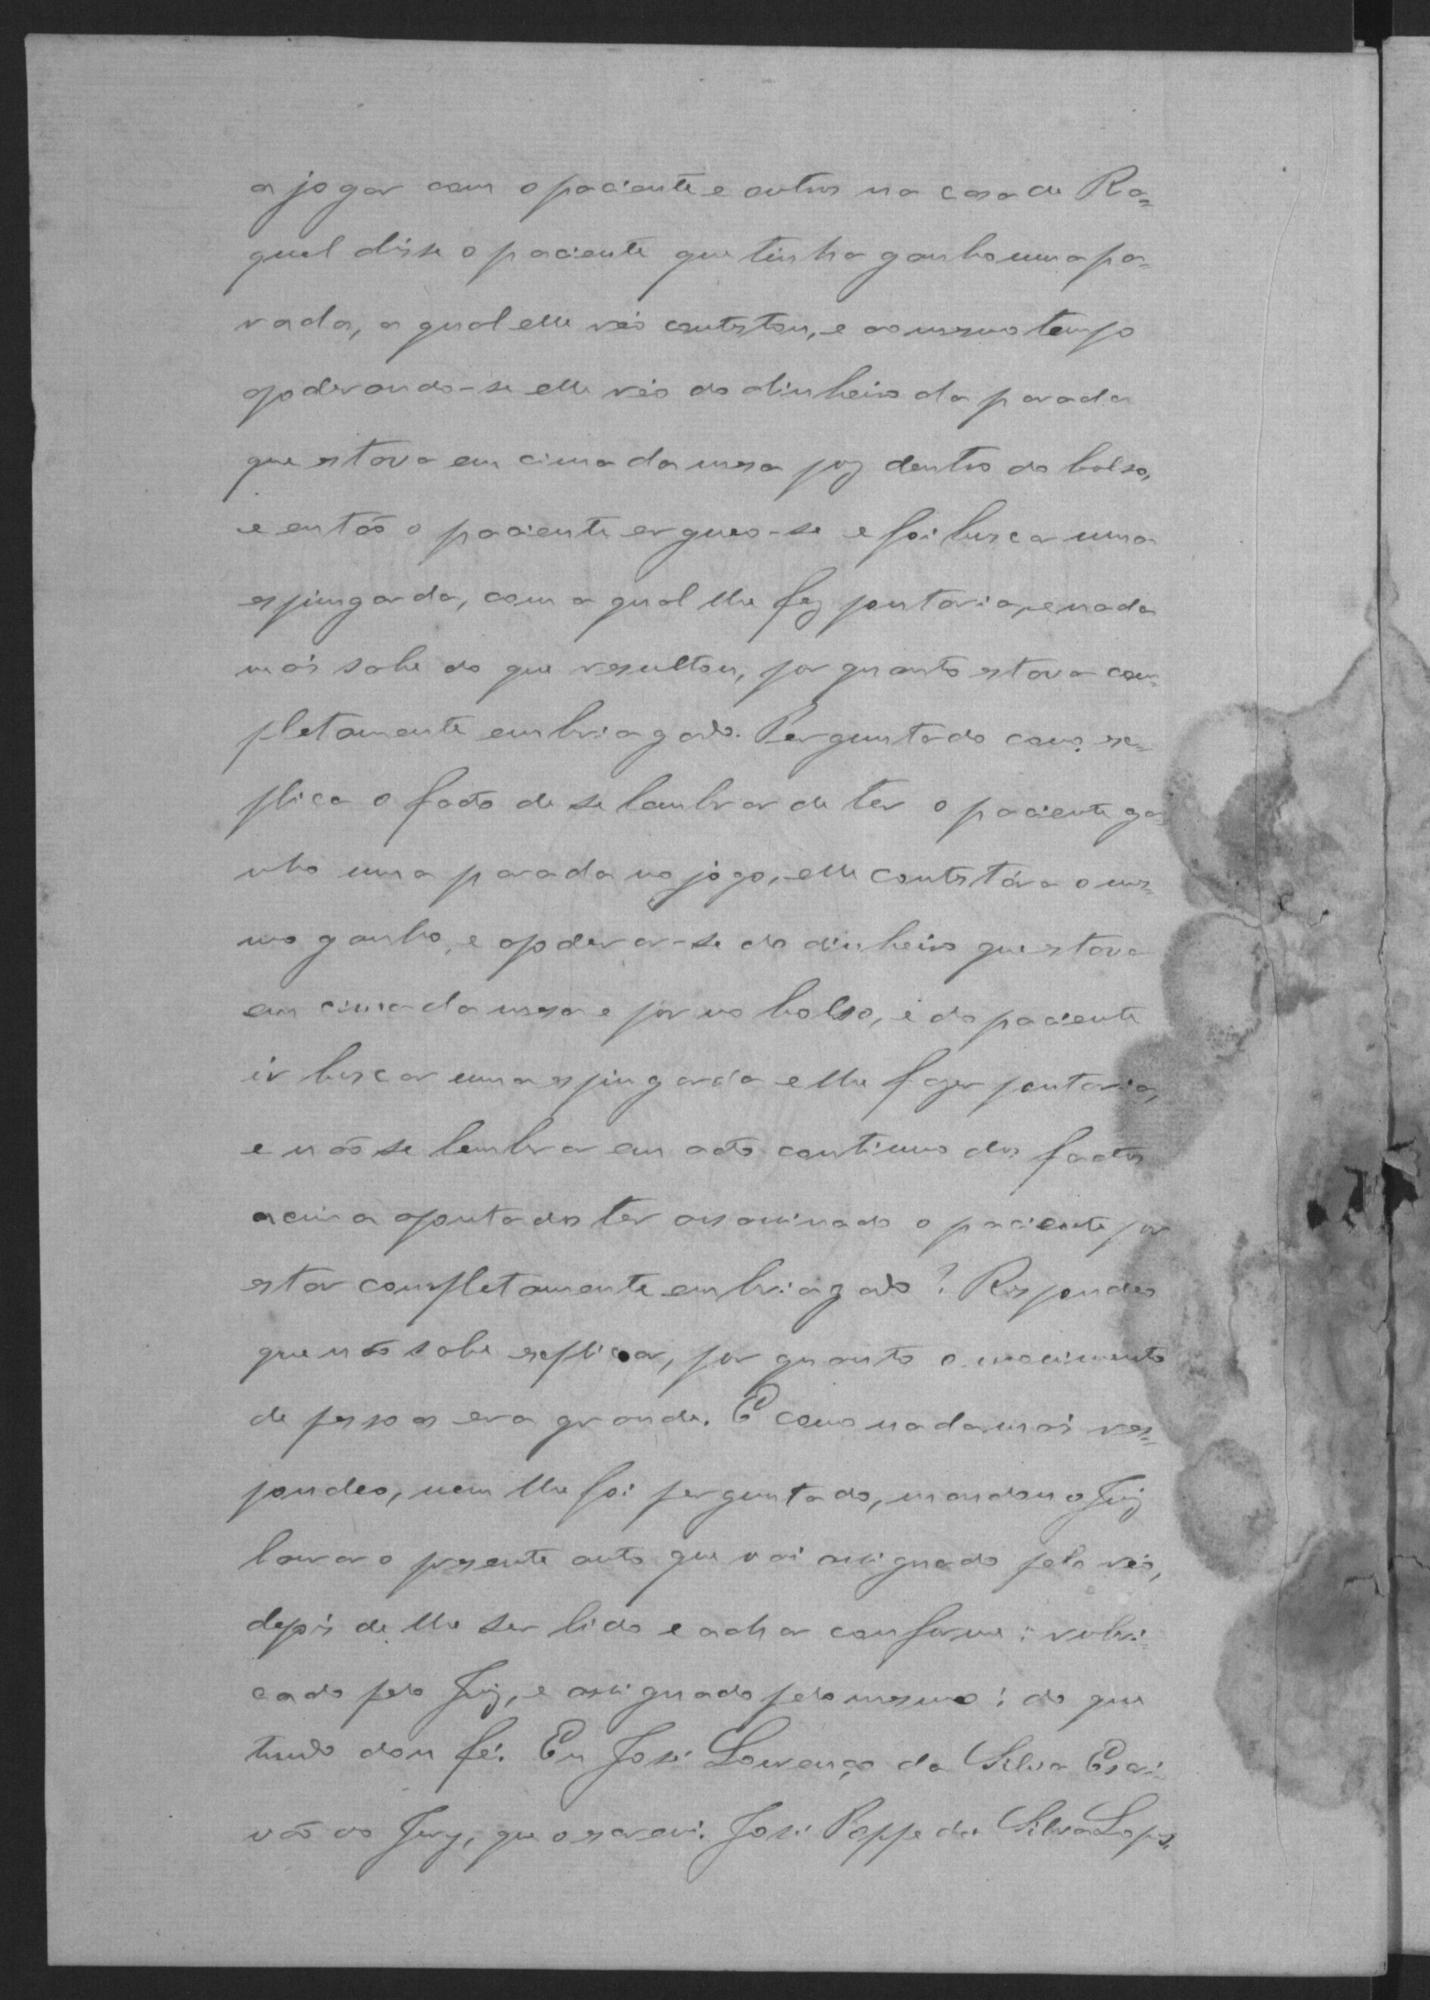 a jogar com o paciente e outros na casa de Ra=
quel disse o paciente que tinha ganho uma pa=
rada, a qual elle réo contestou, e ao mesmo tempo
apoderando-se elle réo do dinheiro da parada
que estava em cima da mesa poz dentro do bolso,
e então o paciente ergueo-se e foi buscar uma
espingarda, com a qual lhe fez pontaria, e nada
mais sabe do que resultou, por quanto estava com=
pletamente embriagado. Perguntado como ex=
plica o facto de se lembrar de ter o paciente ga=
nho uma parada no jogo, elle contestára o mes=
mo ganho, e apoderar-se do dinheiro que estava
em cima da mesa e por no bolso, e do paciente
ir buscar uma espingarda e lhe fazer pontaria,
e não se lembrar em acto continuo dos factos
acima apontados ter assassinado o paciente por
estar completamente embriagado? Respondeo
que não sabe explicar, por quanto o movimento
de pessoas era grande. E como nada mais res=
pondeo, nem lhe foi perguntado, mandou o Juiz
lavrar o presente auto que vai assignado pelo réo,
depois de lhe ser lido e achar conforme; rubri=
cado pelo Juiz, e assignado pelo mesmo; do que
tudo dou fé. Eu José Lourenço da Silva Escri=
vão do Jury, que o escrevi. José Poppe da Silva Lopes.